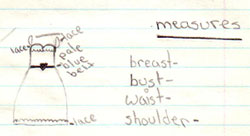 lace
lace
pale
blue
belt
lace
measures
breast-
bust-
waist-
shoulder-